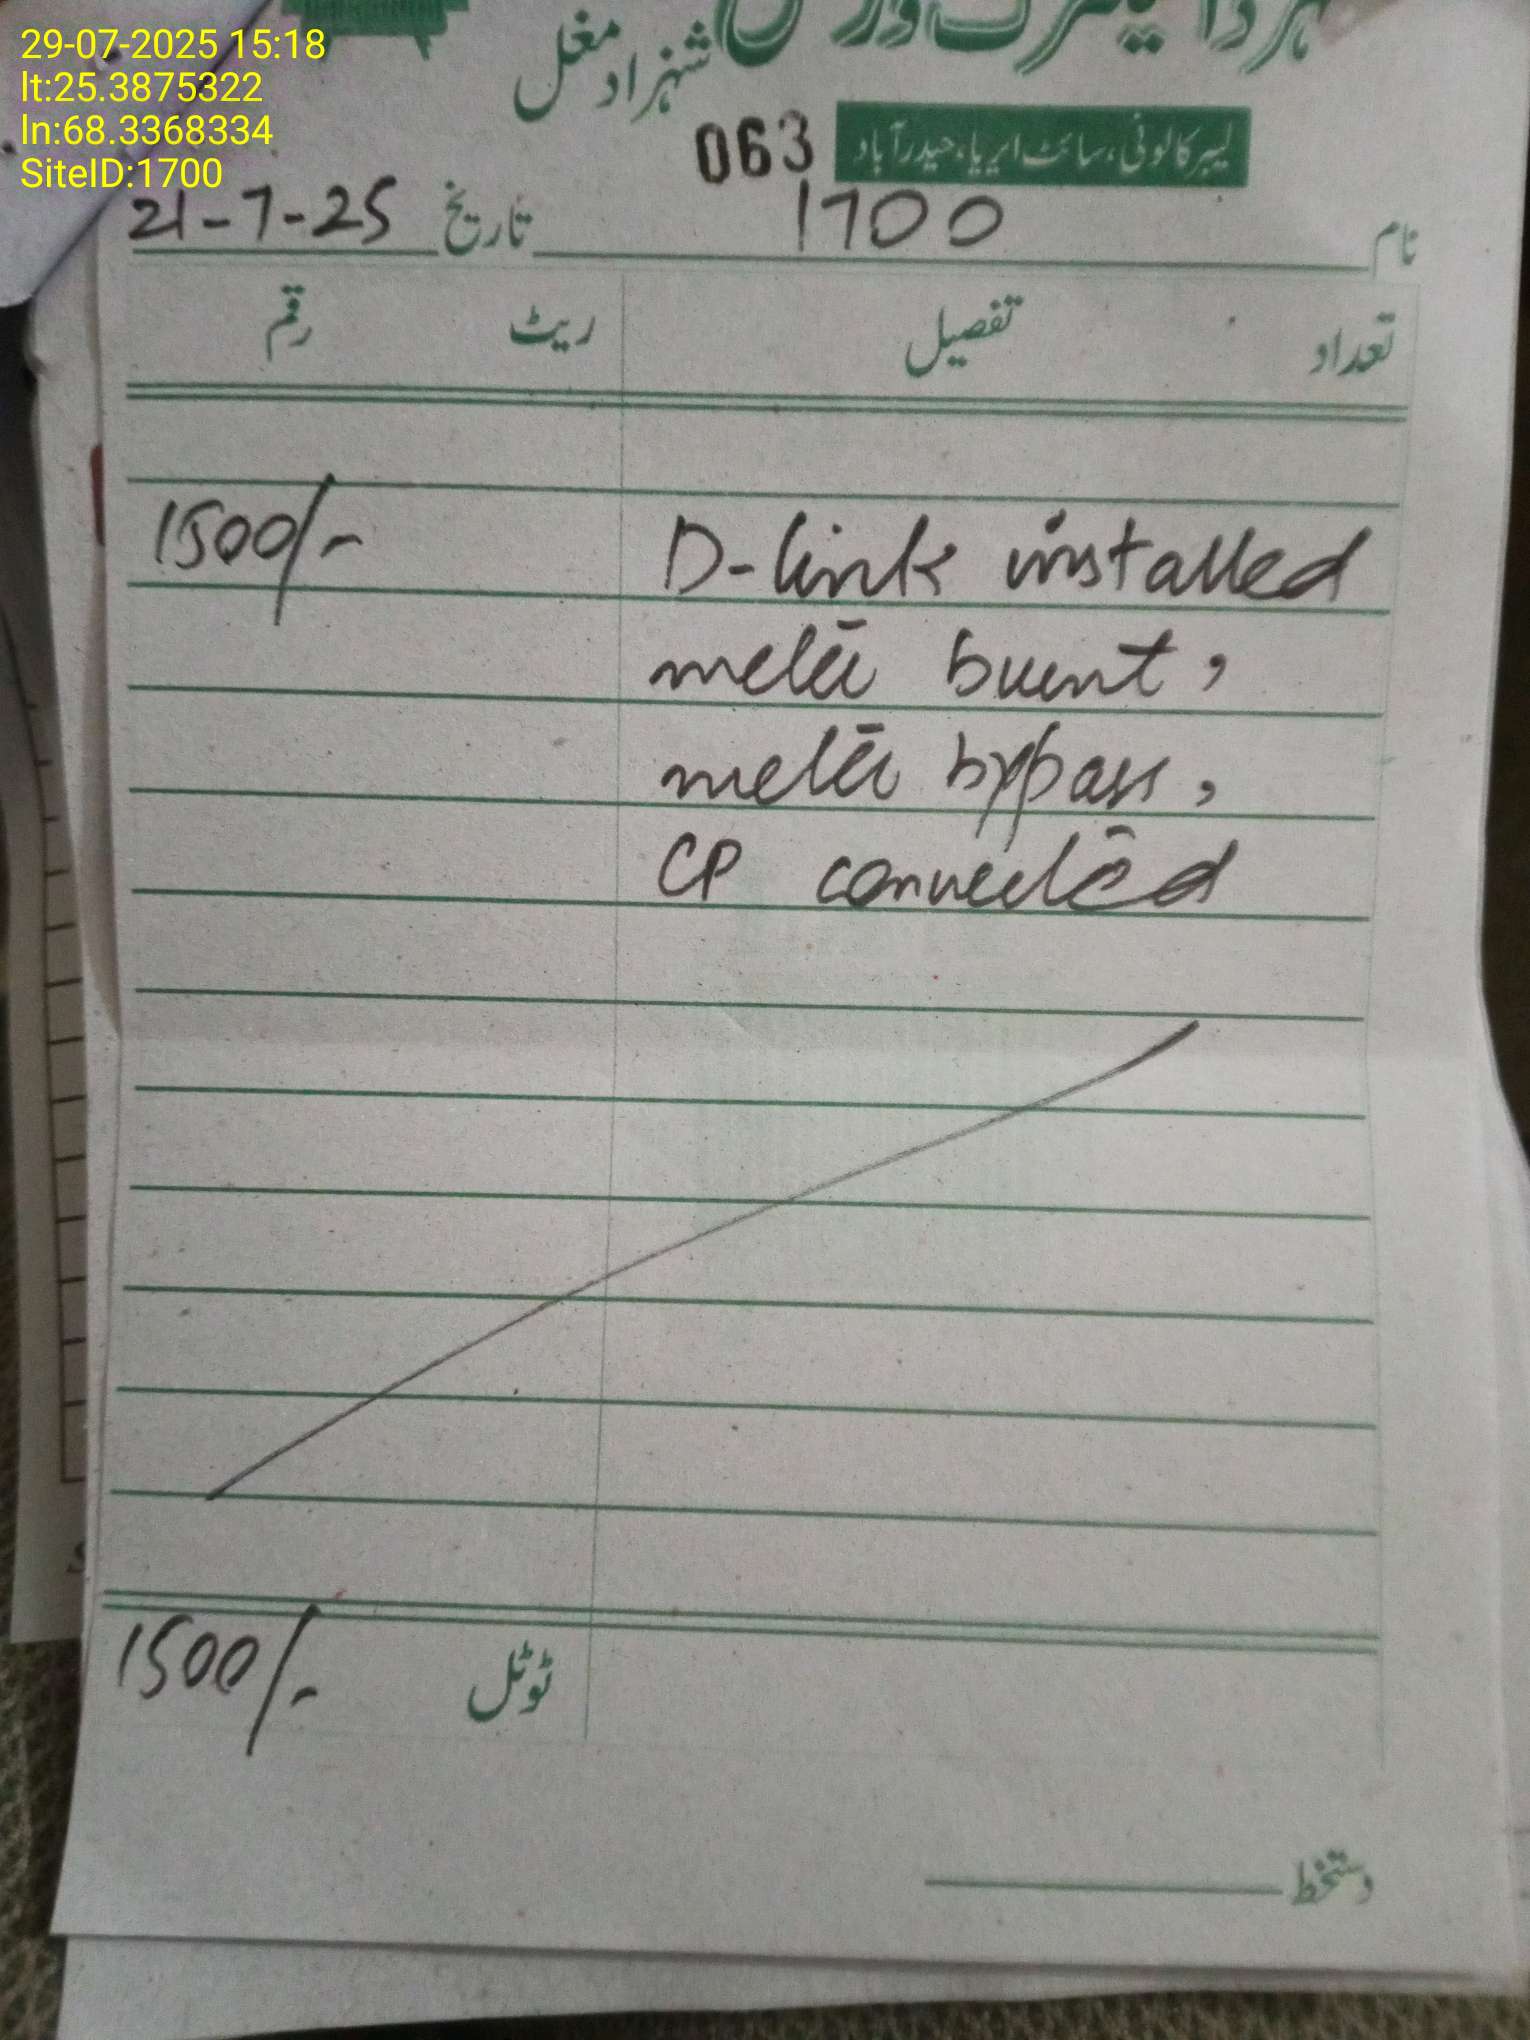 29-07-2025 15:18
lt:25.3875322
ln:68.3368334
SiteID:1700
شہزاد مغل
063 لیبر کالونی، سائٹ ایریا، حیدرآباد
نام 1700 تاریخ 21-7-25
تعداد تفصیل ریٹ رقم
D-link installed 1500/-
meter burnt,
meter bypass,
CP connected
ٹوٹل 1500/-
دستخط